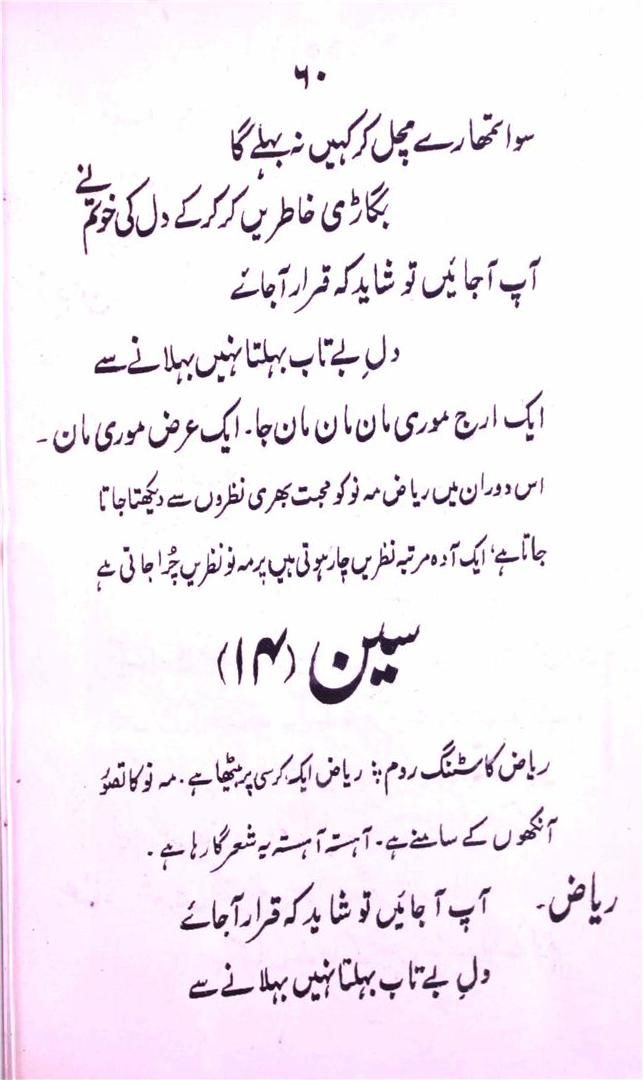 ۶۰
سوا تمھارے مچل کر کہیں نہ بہلے گا
بگاڑی خاطریں کر کر کے دل کی خو تم نے
آپ آجائیں تو شاید کہ قرار آجائے
دلِ بے تاب بہلتا نہیں بہلانے سے
ایک ارج موری مان مان مان جا۔ ایک عرض موری مان۔
اس دوران میں ریاض مہ نو کو محبت بھری نظروں سے دیکھتا جاتا
جاتا ہے، ایک آدہ مرتبہ نظریں چار ہوتی ہیں پر مہ نو نظریں چُرا جاتی ہے
سین (۱۴)
ریاض کا سٹنگ روم :: ریاض ایک کرسی پر بیٹھا ہے۔ مہ نو کا تصوّر
آنکھوں کے سامنے ہے۔ آہستہ آہستہ یہ شعر گا رہا ہے۔
ریاض۔ آپ آجائیں تو شاید کہ قرار آجائے
دلِ بے تاب بہلتا نہیں بہلانے سے